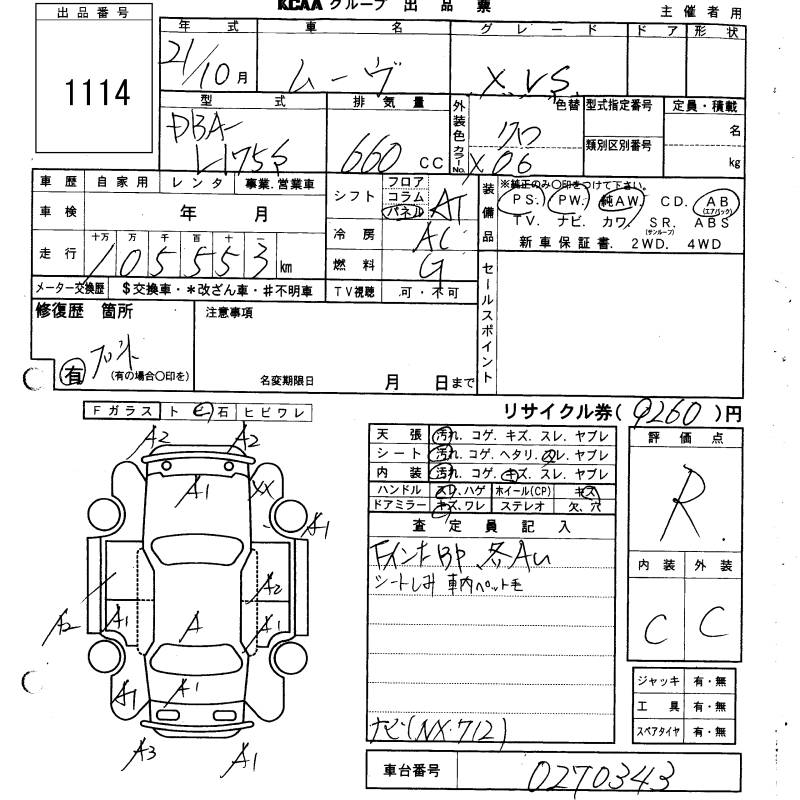 KCAA グループ 出品票
主催者用
出品番号
1114
年式 車名 グレード ドア 形状
21/10月 ムーヴ X.VS.
型式 排気量 外装色 カラーNo. 色替 型式指定番号 定員・積載
DBA-
L175S
660 CC
X06
類別区別番号
名
kg
車歴 自家用 レンタ 事業.営業車
車検 年 月
走行 十万 万 千 百 十 一
105553 km
シフト フロア コラム パネル AT
冷房 AC
燃料 G
装備品
※純正のみ〇印をつけて下さい。
PS. PW. 純AW. CD. AB(エアバック)
TV. ナビ. カワ. SR.(サンルーフ) ABS
新車保証書. 2WD. 4WD
メーター交換歴 $交換車・*改ざん車・#不明車 TV視聴 可・不可
セールスポイント
修復歴 箇所 注意事項
有 フロント
(有の場合〇印を)
名変期限日 月 日まで
Fガラス ト ビ 石 ヒビワレ
リサイクル券( 9260 )円
天張 汚れ. コゲ. キズ. スレ. ヤブレ
シート 汚れ. コゲ. ヘタリ. スレ. ヤブレ
内装 汚れ. コゲ. キズ. スレ. ヤブレ
ハンドル スレ.ハゲ ホイール(CP) キズ
ドアミラー キズ.ワレ ステレオ 欠.穴
評価点
R
内装 外装
C C
査定員記入
FインナBP 各AU
シートしみ 車内ペット毛
ナビ(NX-712)
A2 A2
A1 XX
A1
A2
A2 A1 A A1
A1 A1
A3 A1
ジャッキ 有・無
工具 有・無
スペアタイヤ 有・無
車台番号 0270343